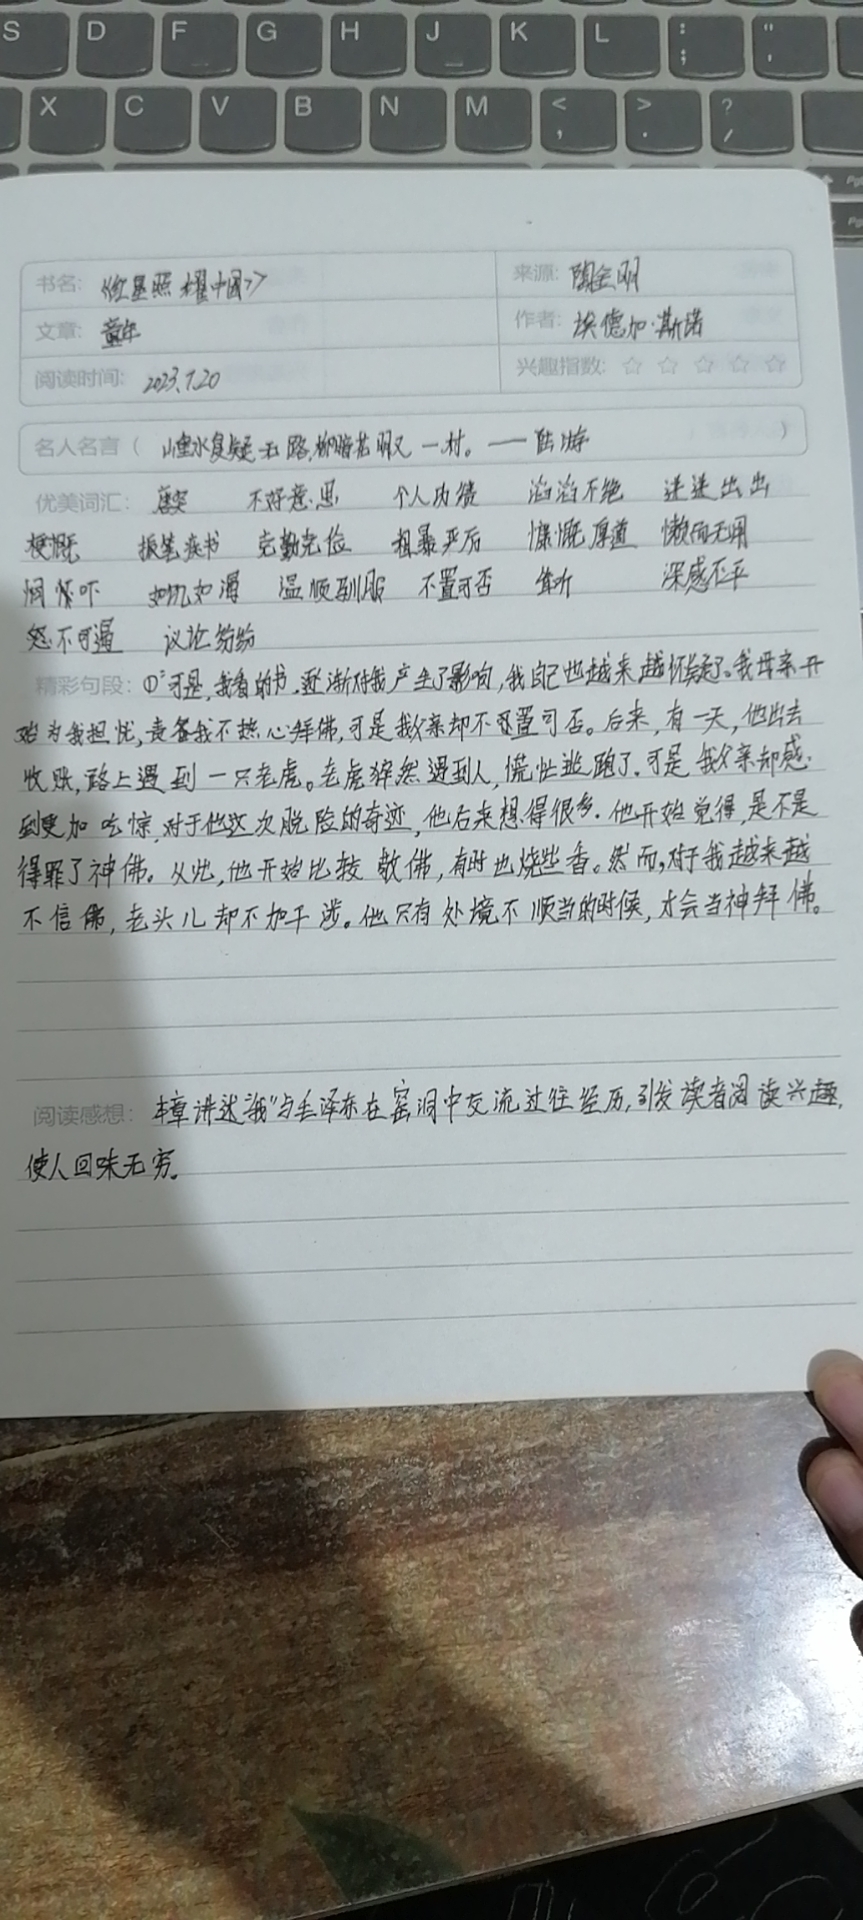 S D F G H J K L : ; " '
X C V B N M < , > . ? /
书名: 《红星照耀中国》 来源: 陶金明
文章: 童年 作者: 埃德加·斯诺
阅读时间: 2023.7.20 兴趣指数: ☆ ☆ ☆ ☆ ☆
名人名言( 山重水复疑无路,柳暗花明又一村。——陆游 )
优美词汇: 唐突 不好意思 个人功绩 滔滔不绝 进进出出
梗概 振笔疾书 克勤克俭 粗暴严厉 慷慨厚道 懒而无用
恫吓 如饥如渴 温顺驯服 不置可否 耸听 深感不平
怒不可遏 议论纷纷
精彩句段: ①:可是,我看的书,逐渐对我产生了影响,我自己也越来越怀疑了。我母亲开
始为我担忧,责备我不热心拜佛,可是我父亲却不置可否。后来,有一天,他出去
收账,路上遇到一只老虎。老虎猝然遇到人,慌忙逃跑了.可是我父亲却感
到更加吃惊,对于他这次脱险的奇迹,他后来想得很多.他开始觉得,是不是
得罪了神佛。从此,他开始比较敬佛,有时也烧些香。然而,对于我越来越
不信佛,老头儿却不加干涉。他只有处境不顺当的时候,才会当神拜佛。
阅读感想: 本章讲述"我"与毛泽东在窑洞中交流过往经历,引发读者阅读兴趣,
使人回味无穷.